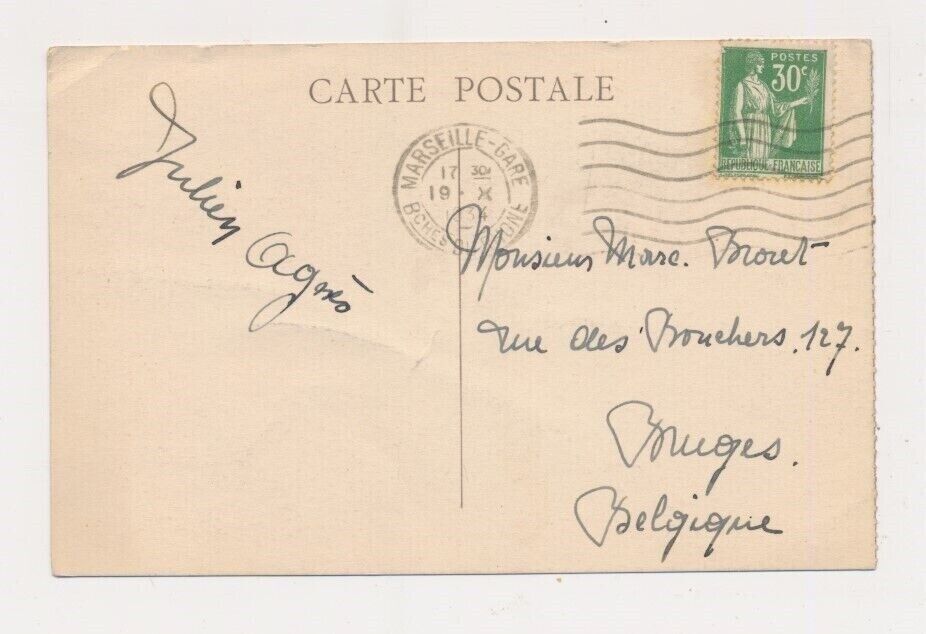 CARTE POSTALE
POSTES
30c
RÉPUBLIQUE FRANÇAISE
MARSEILLE-GARE
17 30
19 - X
BCHES DU RHONE
Julien Agnès
Monsieur Marc.
rue des Bouchers. 127.
Bruges.
Belgique